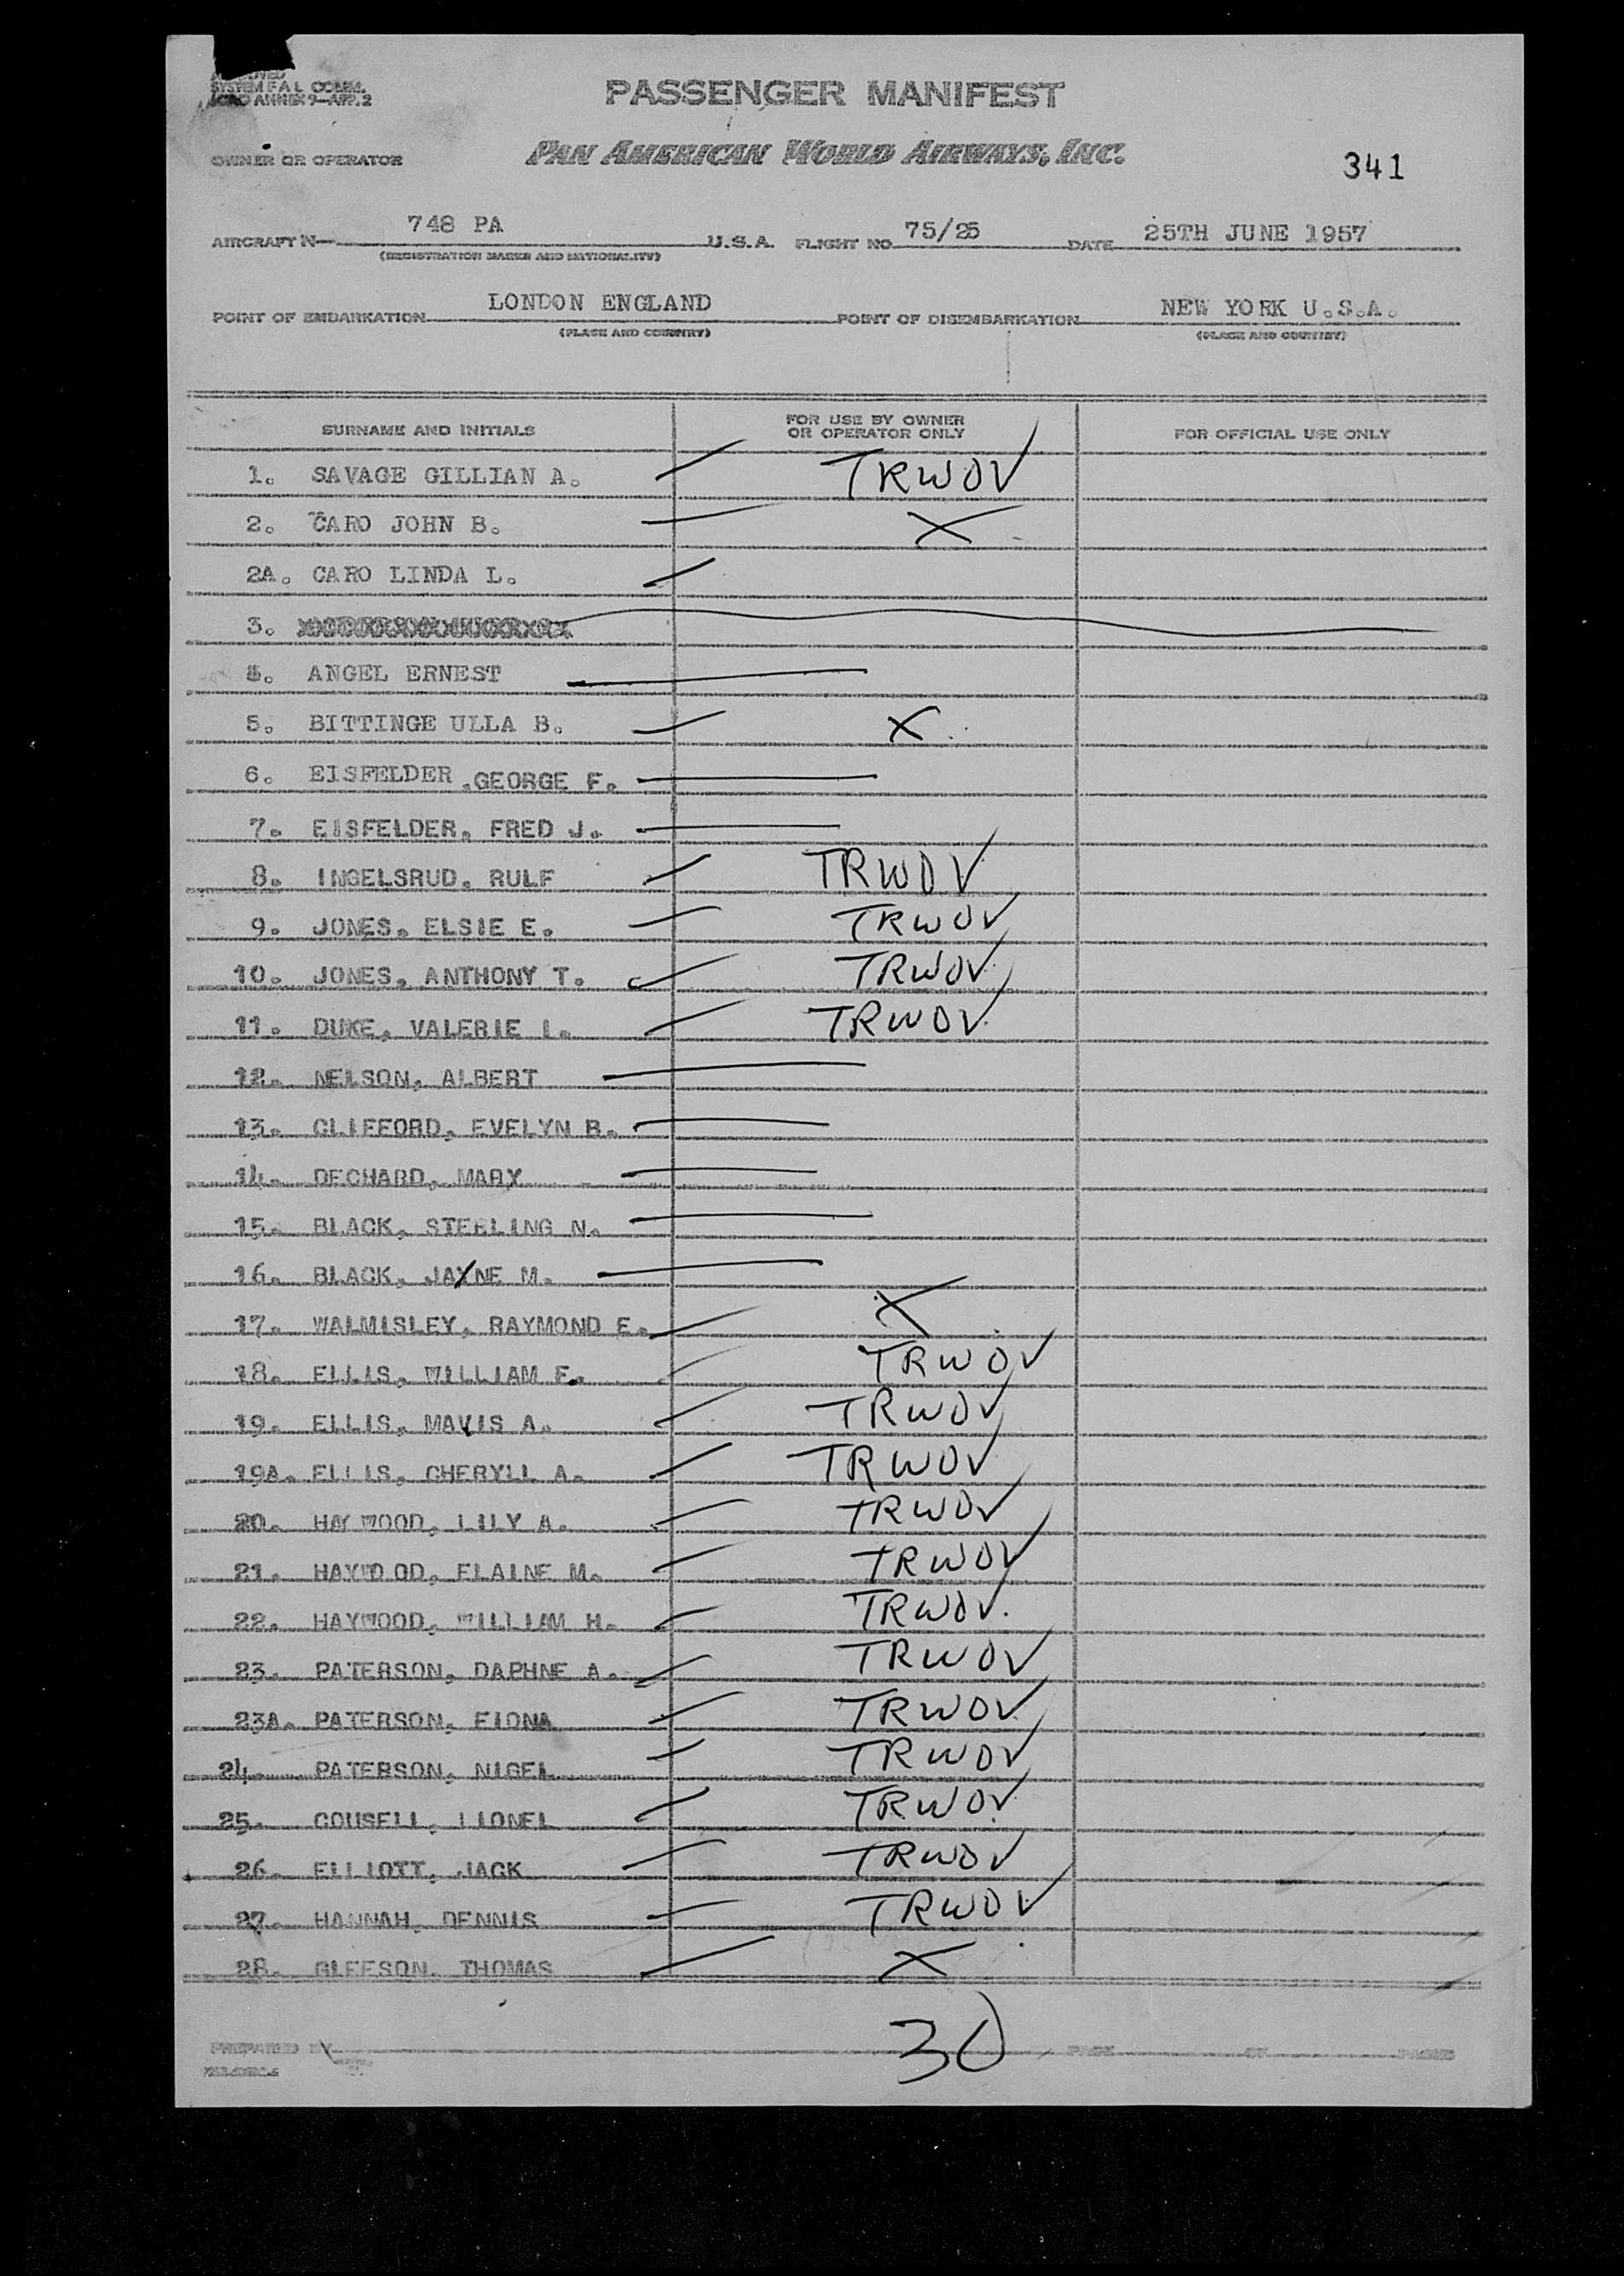 SYSTEM F A L COMM.
ICAO ANNEX 9—APP. 2
PASSENGER MANIFEST
OWNER OR OPERATOR
PAN AMERICAN WORLD AIRWAYS, INC.
341
AIRCRAFT N— 748 PA U.S.A. FLIGHT NO. 75/25 DATE 25TH JUNE 1957
(REGISTRATION MARKS AND NATIONALITY)
POINT OF EMBARKATION LONDON ENGLAND POINT OF DISEMBARKATION NEW YORK U.S.A.
(PLACE AND COUNTRY) (PLACE AND COUNTRY)
SURNAME AND INITIALS FOR USE BY OWNER OR OPERATOR ONLY FOR OFFICIAL USE ONLY
1. SAVAGE GILLIAN A. TRWOV
2. CARO JOHN B. X
2A. CARO LINDA L.
3.
4. ANGEL ERNEST
5. BITTINGE ULLA B. X
6. EISFELDER, GEORGE F.
7. EISFELDER, FRED J.
8. INGELSRUD, RULF TRWOV
9. JONES, ELSIE E. TRWOV
10. JONES, ANTHONY T. TRWOV
11. DUKE, VALERIE I. TRWOV
12. NELSON, ALBERT
13. CLIFFORD, EVELYN B.
14. DECHARD, MARY
15. BLACK, STERLING N.
16. BLACK, JAYNE M.
17. WALMISLEY, RAYMOND E. X
18. ELLIS, WILLIAM F. TRWOV
19. ELLIS, MAVIS A. TRWOV
19A. ELLIS, CHERYLL A. TRWOV
20. HAYWOOD, LILY A. TRWOV
21. HAYWOOD, ELAINE M. TRWOV
22. HAYWOOD, WILLIAM H. TRWOV
23. PATERSON, DAPHNE A. TRWOV
23A. PATERSON, FIONA TRWOV
24. PATERSON, NIGEL TRWOV
25. COUSELL, LIONEL TRWOV
26. ELLIOTT, JACK TRWOV
27. HANNAH, DENNIS TRWOV
28. GLEESON, THOMAS X
30
PREPARED BY PAGE OF PAGES